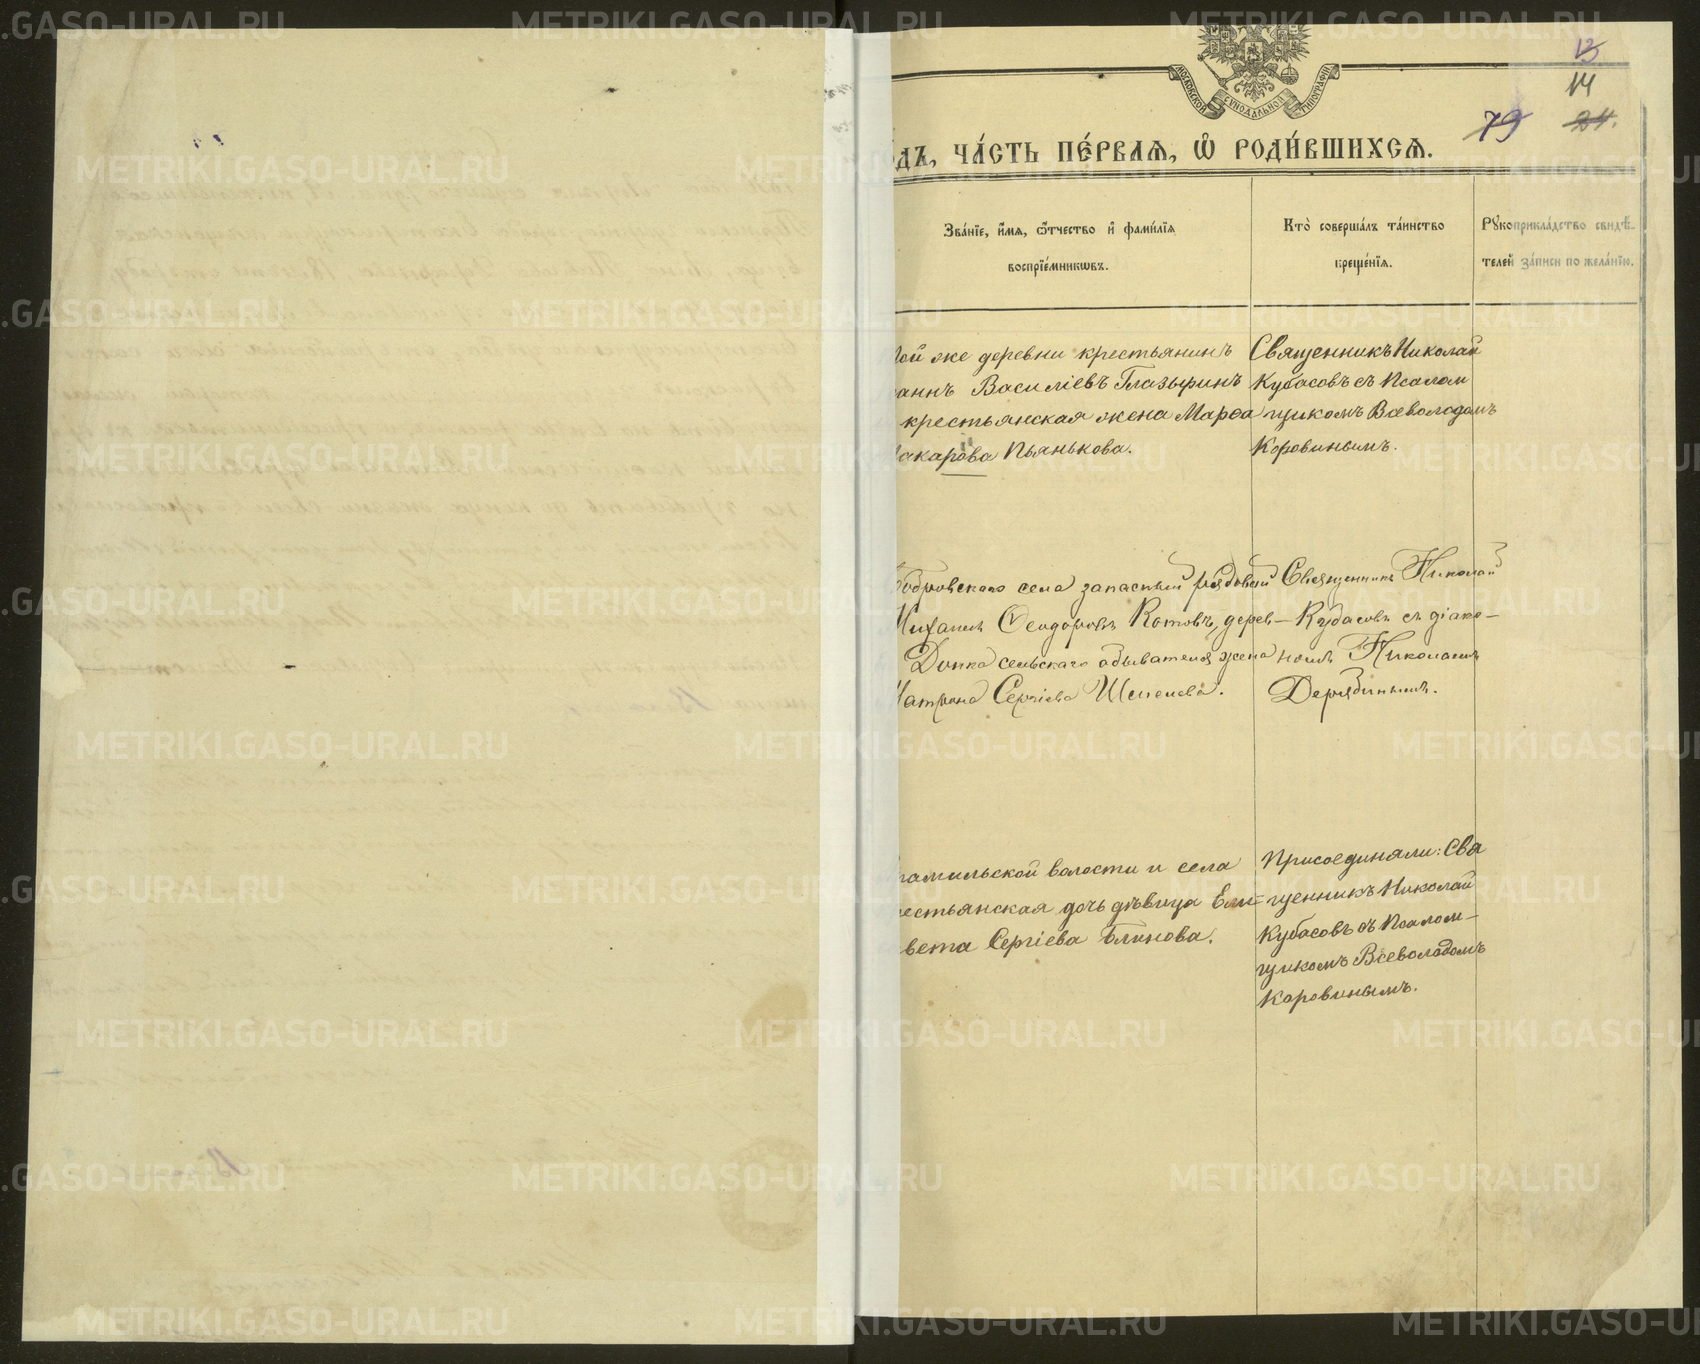 МОСКОВСКОЙ СѴНОДАЛЬНОЙ ТИПОГРАФІИ
13
14
79
24.
ДЪ, ЧА́СТЬ ПЕ́РВАѦ, Ѡ҆ РОДИ́ВШИХСѦ.
Зва́нїе, и҆́мѧ, ѻ҆́тчество и҆ фами́лїѧ
воспрїе́мникѡвъ.
Кто̀ соверша́лъ та́инство
креще́нїѧ.
Рꙋкоприкла́дство свидѣ́-
телей за́писи по жела́нїю.
той же деревни крестьянинъ
аннъ Василіевъ Глазыринъ
крестьянская жена Марѳа
акарова Пьянькова.
Священникъ Николай
Кубасовъ съ Псалом
щикомъ Всеволодомъ
Коровинымъ.
Бобровскаго села запасный рядовой
Михаилъ Ѳеодоровъ Котовъ, дерев-
сельскаго обывателя жена
Матрона Сергіева Шепелева.
Священникъ Николай
Кубасовъ съ діако-
номъ Николаемъ
Дерябинымъ.
рамильской волости и села
рестьянская дочь дѣвица Ели-
вета Сергіева Блинова.
Присоединяли: Свя
щенникъ Николай
Кубасовъ съ Псалом-
щикомъ Всеволодомъ
Коровинымъ.
METRIKI.GASO-URAL.RU